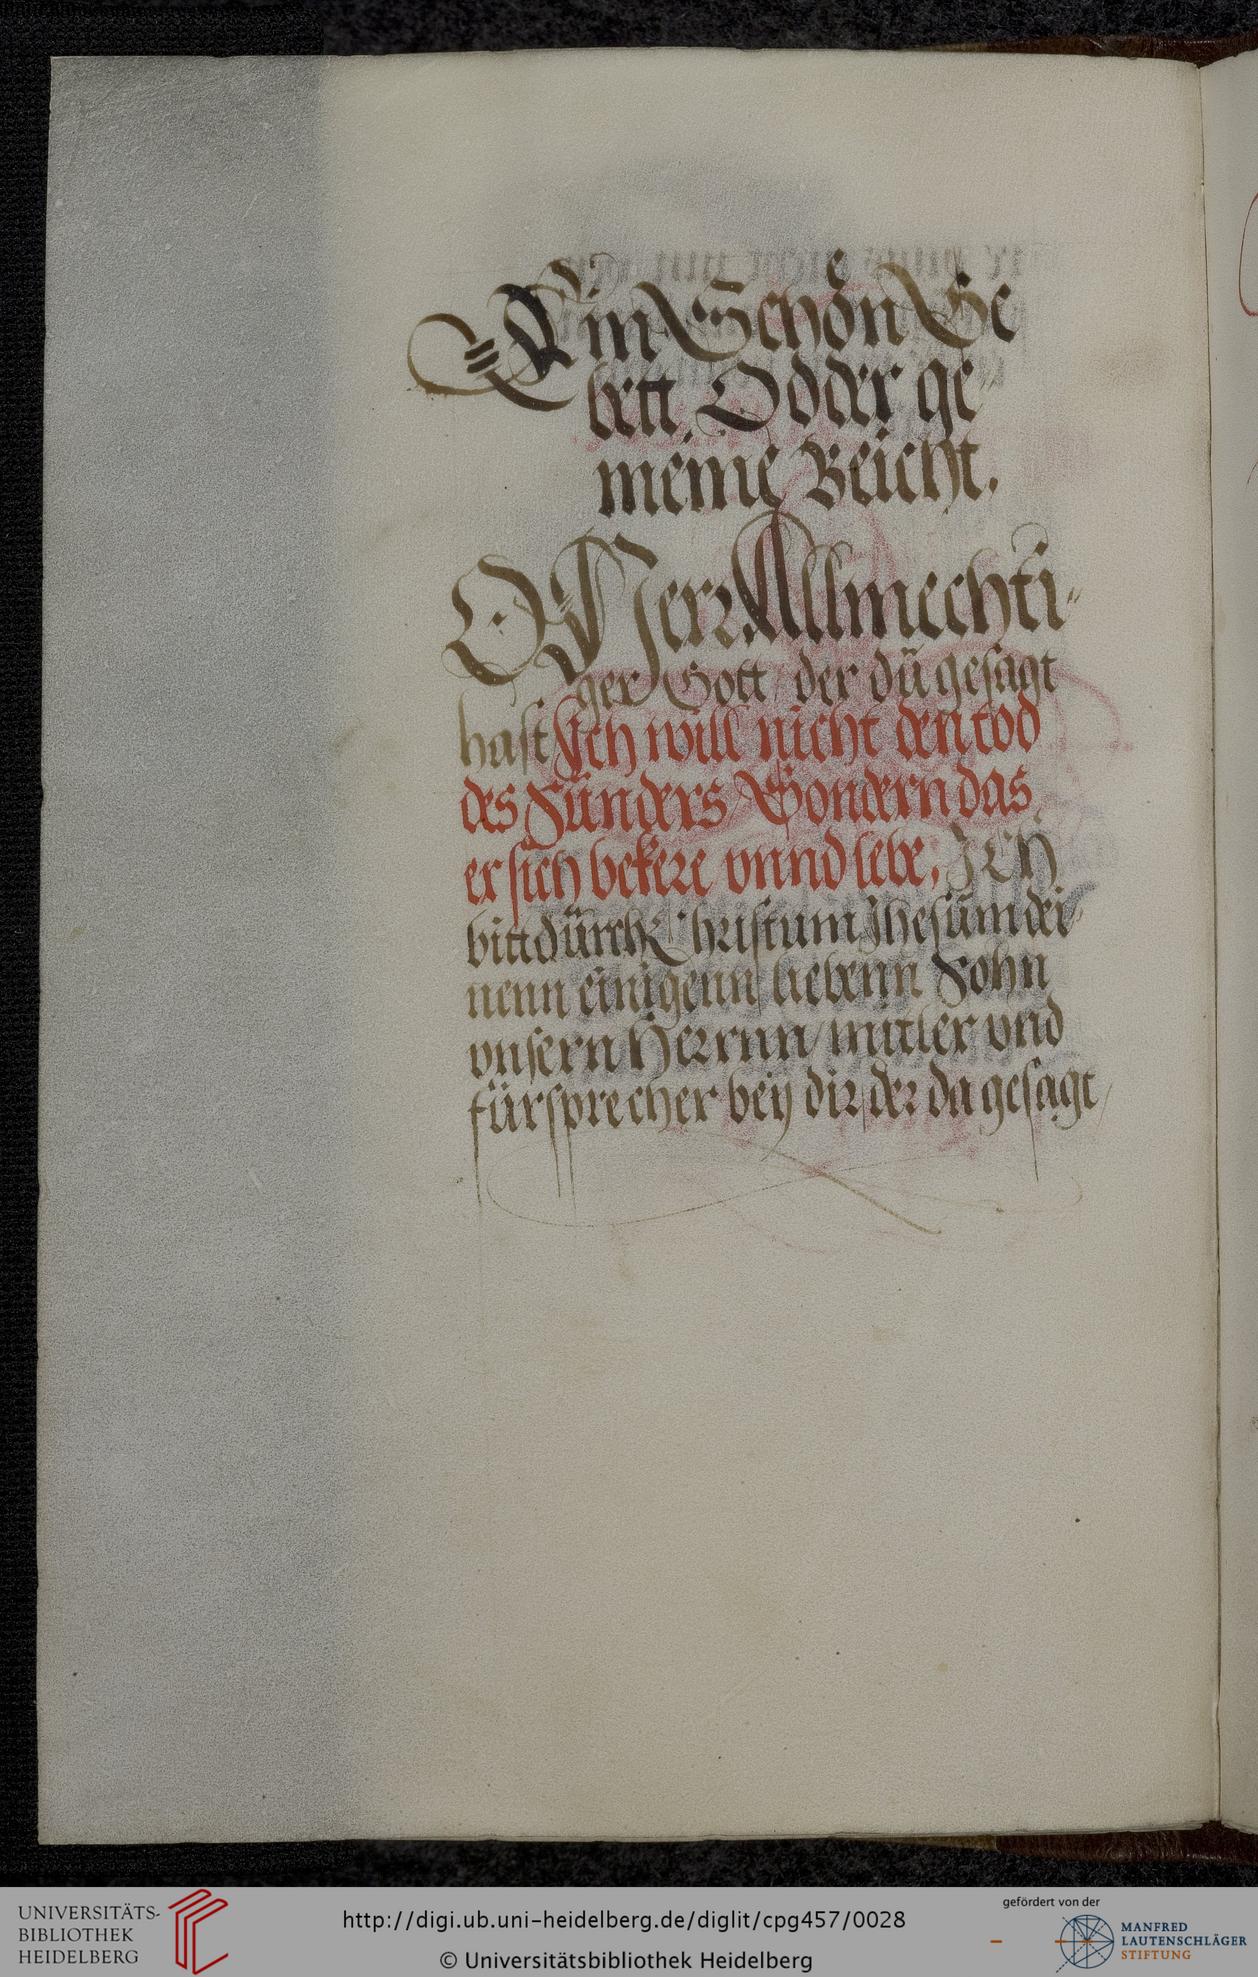 Ein Schön Ge
bett, Odder ge
meine Beicht.
O Herr Allmechti-
ger Gott / der dü gesagt
hast Ich will nicht den tod
des Sünders / Sondern das
er sich bekere / vnnd lebe, ICH
bitt dürch Christum Jhesüm dei-
nenn einigenn liebenn Sohn
vnsern Herrnn / mitler vnd
fürsprecher bey dir / der da gesagt /
UNIVERSITÄTS-
BIBLIOTHEK
HEIDELBERG
http://digi.ub.uni-heidelberg.de/diglit/cpg457/0028
© Universitätsbibliothek Heidelberg
gefördert von der
MANFRED
LAUTENSCHLÄGER
STIFTUNG